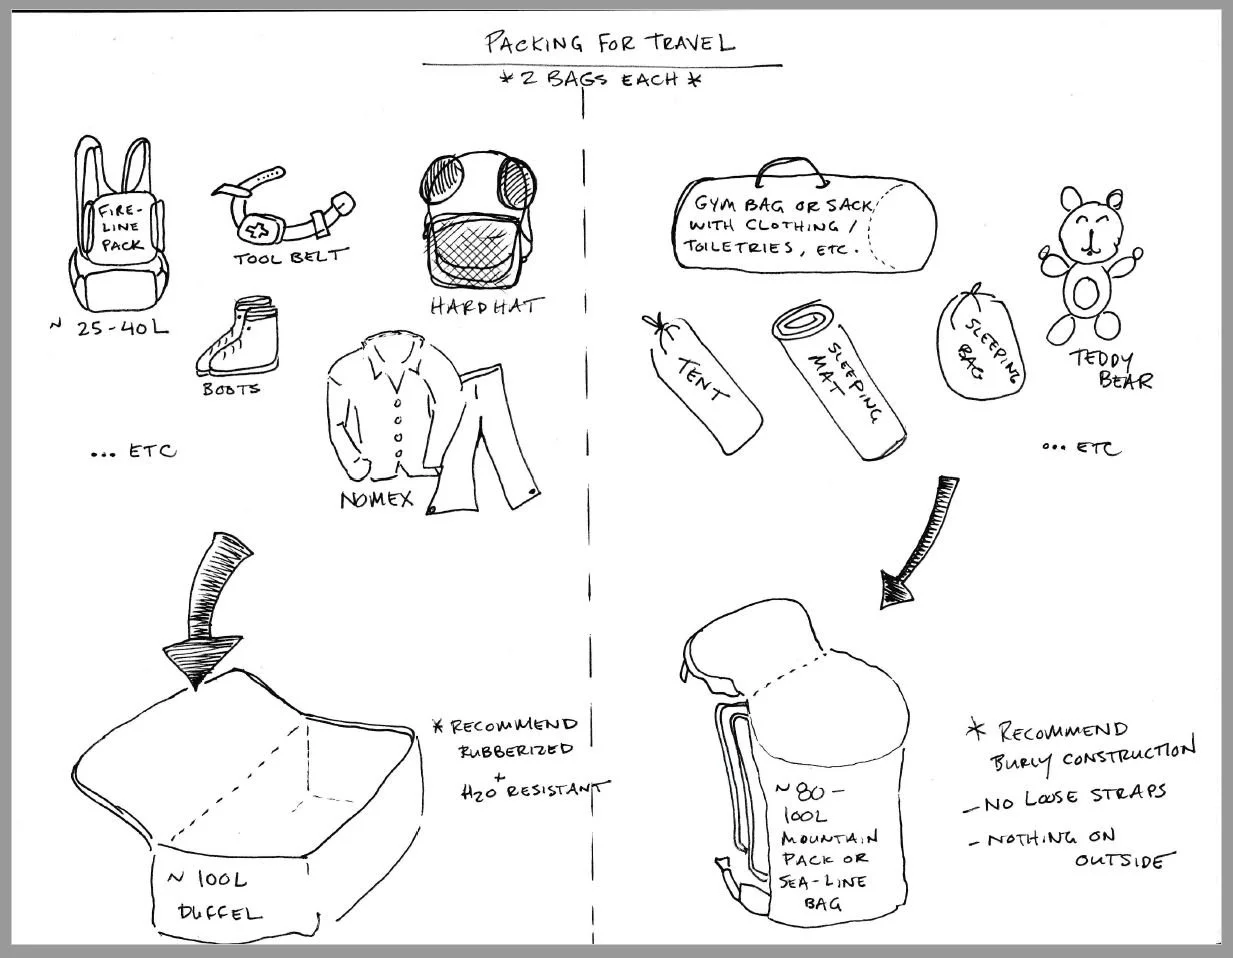 PACKING FOR TRAVEL
* 2 BAGS EACH *
FIRE-
LINE
PACK
~ 25-40L
TOOL BELT
HARDHAT
BOOTS
... ETC
NOMEX
* RECOMMEND
RUBBERIZED
+
H2O RESISTANT
~ 100L
DUFFEL
GYM BAG OR SACK
WITH CLOTHING /
TOILETRIES, ETC.
TENT
SLEEPING
MAT
SLEEPING
BAG
TEDDY
BEAR
... ETC
~ 80-
100L
MOUNTAIN
PACK OR
SEA-LINE
BAG
* RECOMMEND
BURLY CONSTRUCTION
- NO LOOSE STRAPS
- NOTHING ON
OUTSIDE